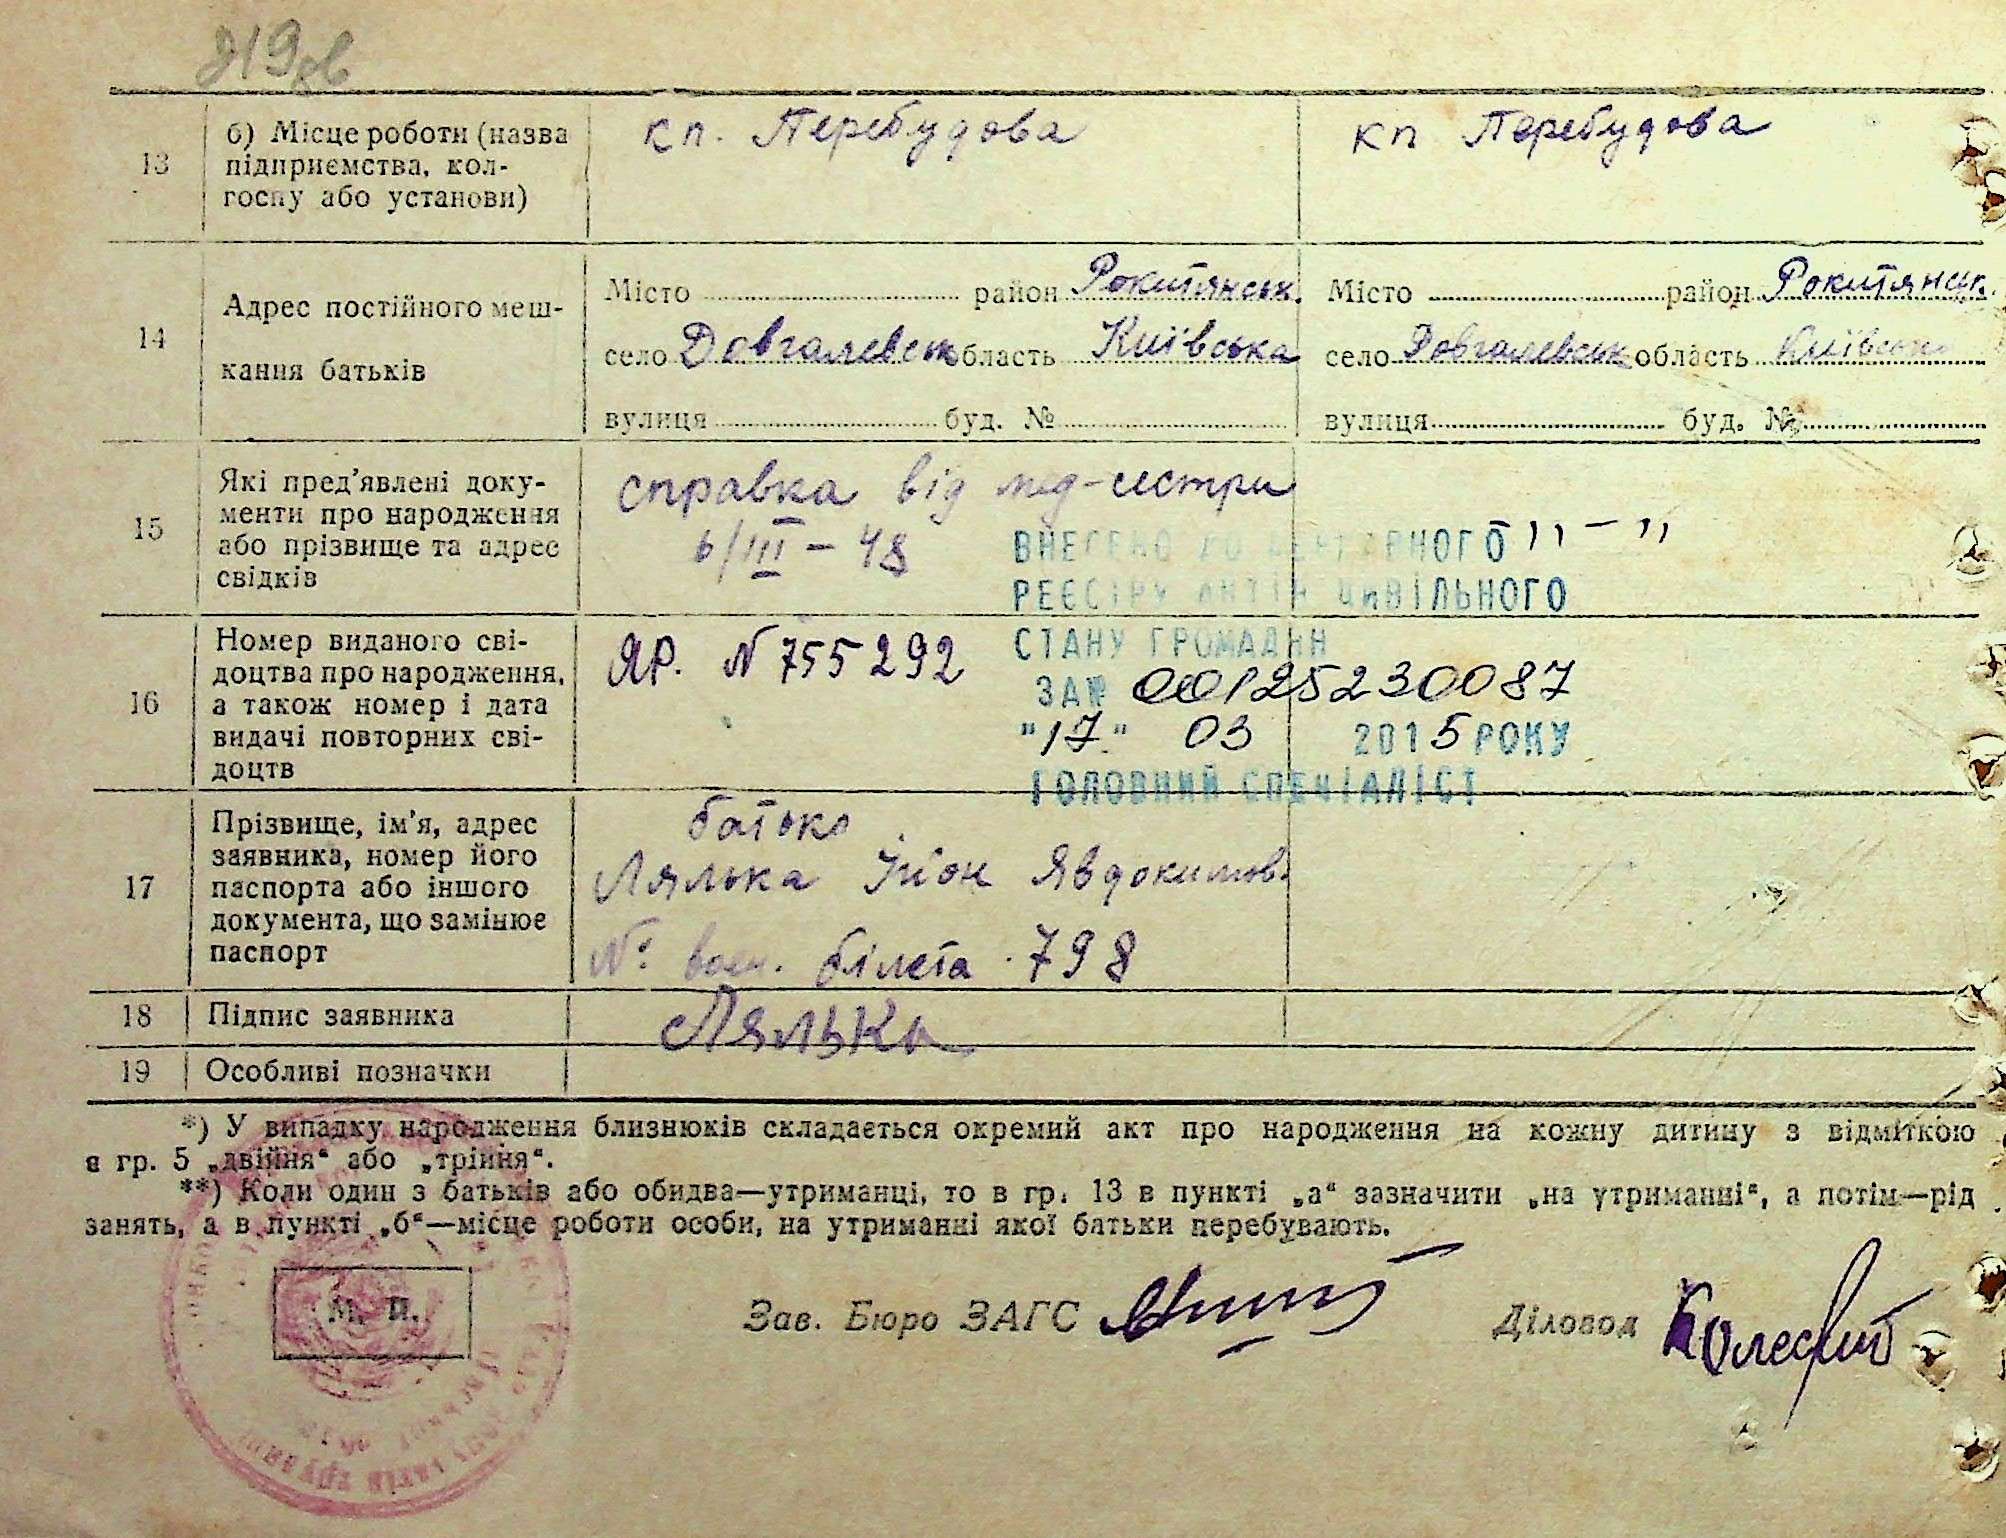 219 зв
13
б) Місце роботи (назва
підприємства, кол-
госпу або установи)
кп. Перебудова
кп Перебудова
14
Адрес постійного меш-
кання батьків
Місто район Рокитянськ.
село Довгалевськ область Київська
вулиця буд. №
Місто район Рокитянськ.
село Довгалевськ область Київськ
вулиця буд. №
15
Які пред'явлені доку-
менти про народження
або прізвище та адрес
свідків
справка від мед-сестри
6/III – 48
" – "
ВНЕСЕНО ДО ДЕРЖАВНОГО
РЕЄСТРУ АКТІВ ЦИВІЛЬНОГО
СТАНУ ГРОМАДЯН
ЗА № 00125230087
"17" 03 2015 РОКУ
ГОЛОВНИЙ СПЕЦІАЛІСТ
16
Номер виданого сві-
доцтва про народження,
а також номер і дата
видачі повторних сві-
доцтв
ЯР. N 755292
17
Прізвище, ім'я, адрес
заявника, номер його
паспорта або іншого
документа, що замінює
паспорт
батько
Лялька Явдокимов.
№ білета 798
18 Підпис заявника
Лялька
19 Особливі позначки
*) У випадку народження близнюків складається окремий акт про народження на кожну дитину з відміткою
в гр. 5 „двійня“ або „трійня“.
**) Коли один з батьків або обидва—утриманці, то в гр. 13 в пункті „а“ зазначити „на утриманні“, а потім—рід
занять, а в пункті „б“—місце роботи особи, на утриманні якої батьки перебувають.
М. П.
Зав. Бюро ЗАГС
Діловод